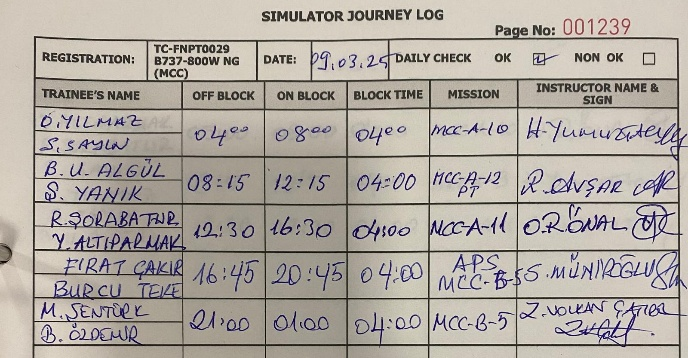 SIMULATOR JOURNEY LOG
Page No: 001239
REGISTRATION: TC-FNPT0029 B737-800W NG (MCC) DATE: 09.03.25 DAILY CHECK OK ☑ NON OK ☐
TRAINEE'S NAME OFF BLOCK ON BLOCK BLOCK TIME MISSION INSTRUCTOR NAME & SIGN
Ö.YILMAZ
S.SAYIN
04⁰⁰ 08⁰⁰ 04⁰⁰ MCC-A-10
B.U.ALGÜL
Ş.YANIK
08:15 12:15 04:00 MCC-A-12 PT R.AVŞAR
R.ŞORABATUR
Y.ALTIPARMAK
12:30 16:30 04:00 MCC-A-11 O.R.ÖNAL
FIRAT ÇAKIR
BURCU TEKE
16:45 20:45 04:00 APS MCC-B-5 S.MÜNİROĞLU
M.ŞENTÜRK
B.ÖZDEMİR
21:00 01:00 04:00 MCC-B-5 Z.VOLKAN